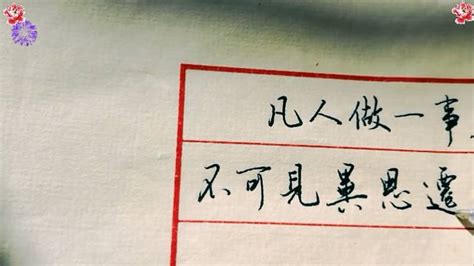 凡人做一事
不可見異思遷